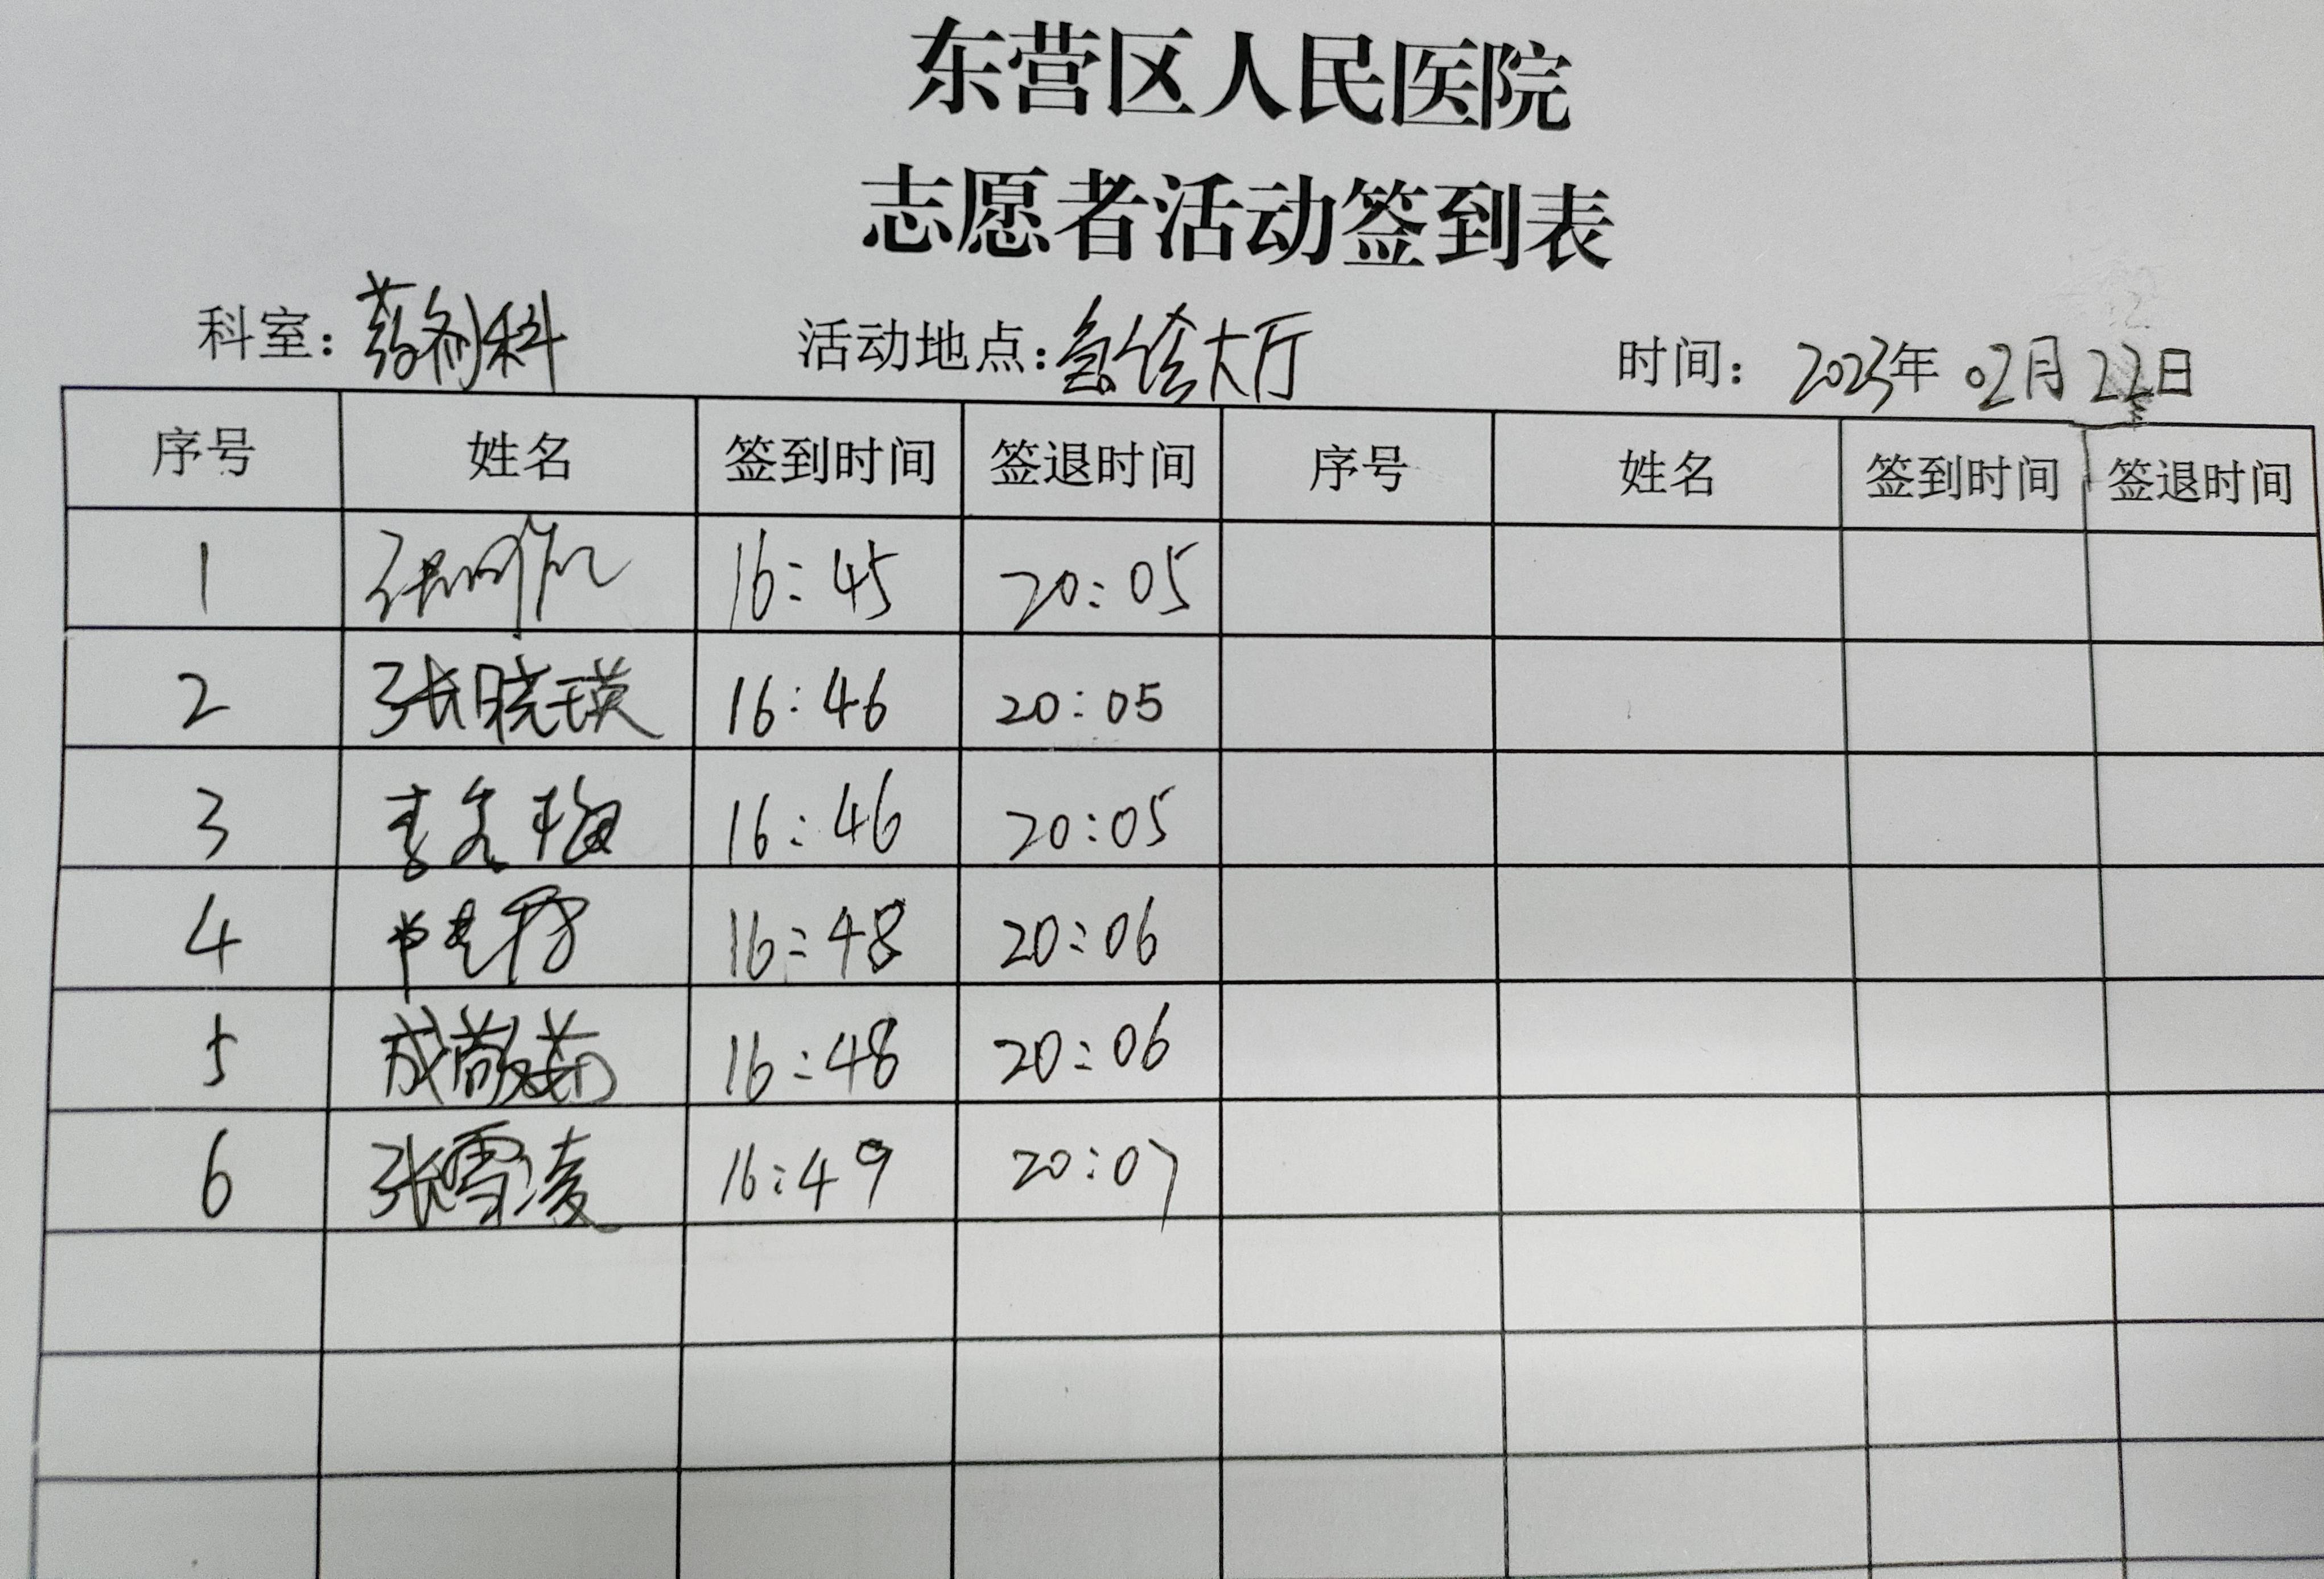 东营区人民医院
志愿者活动签到表
科室：药剂科 活动地点：急诊大厅 时间：2023年02月22日
序号 姓名 签到时间 签退时间 序号 姓名 签到时间 签退时间
1 16:45 20:05
2 张晓瑛 16:46 20:05
3 李 梅 16:46 20:05
4 16:48 20:06
5 成敬茹 16:48 20:06
6 张雪凌 16:49 20:07